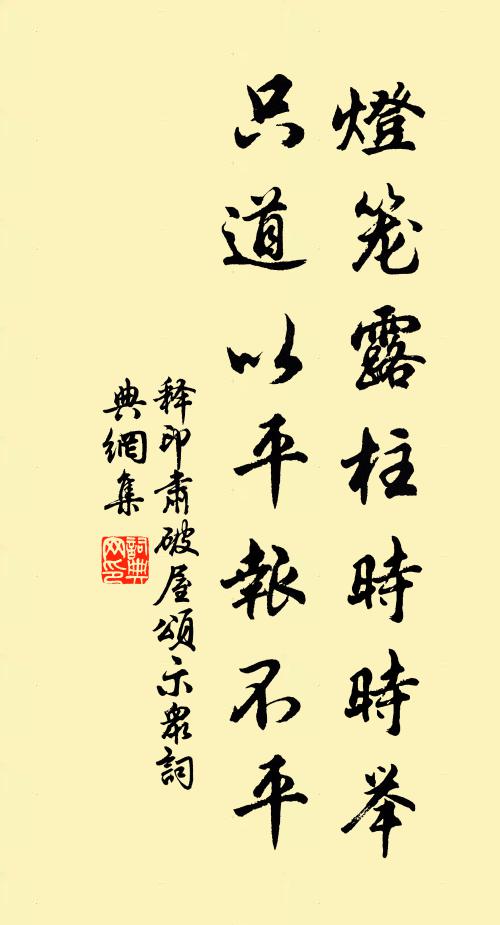 燈笼露柱時時举
只道以平報不平
释印肃破屋頌示眾詞
典網集
詞典
网印